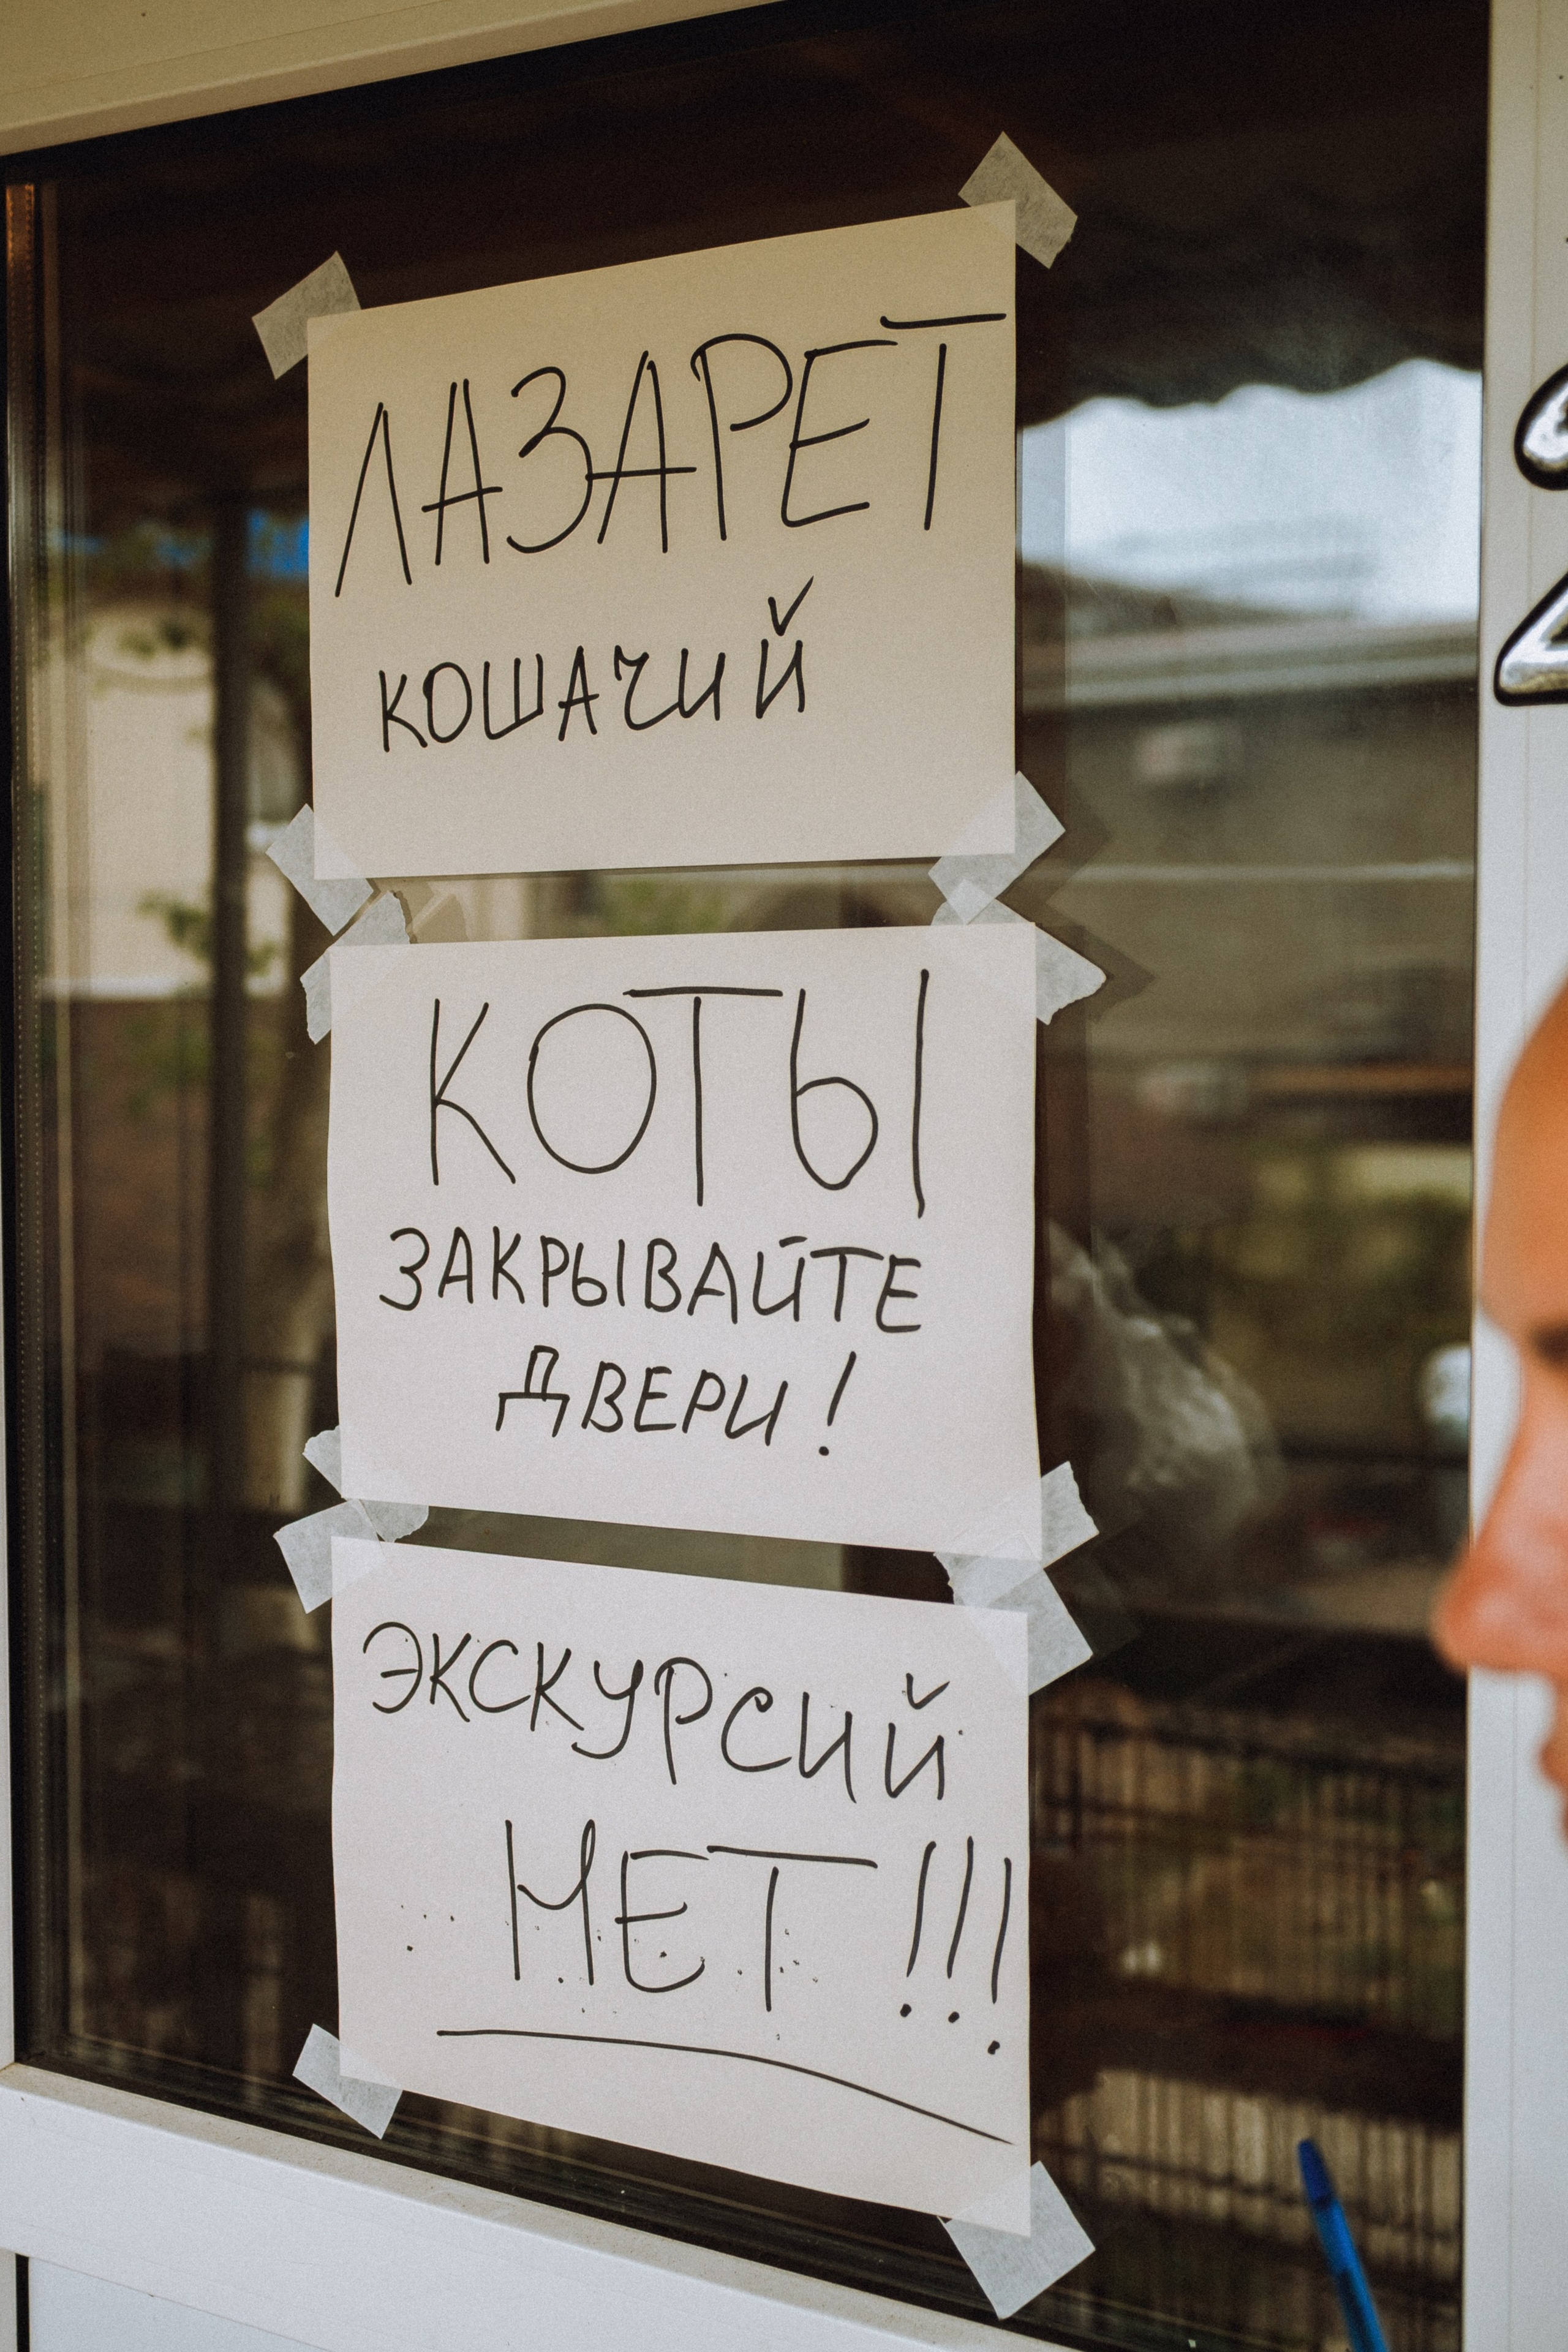 ЛАЗАРЕТ
КОШАЧИЙ
КОТЫ
ЗАКРЫВАЙТЕ
ДВЕРИ!
ЭКСКУРСИЙ
НЕТ!!!